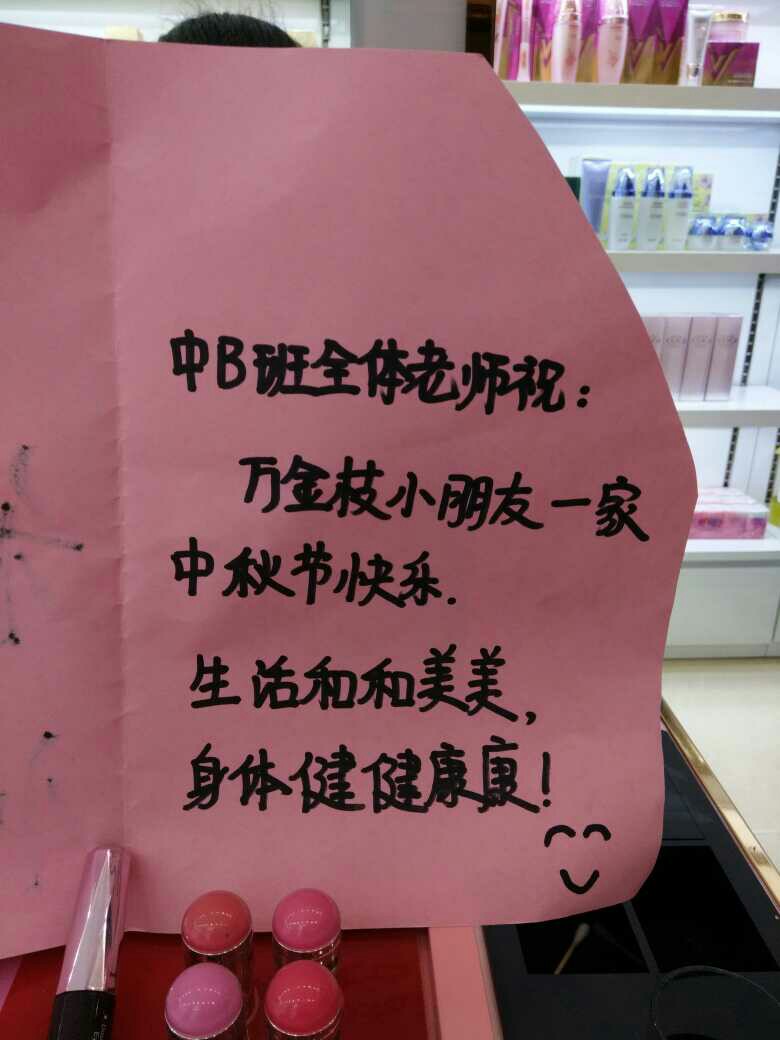 中B班全体老师祝：
万金枝小朋友一家
中秋节快乐.
生活和和美美，
身体健健康康！